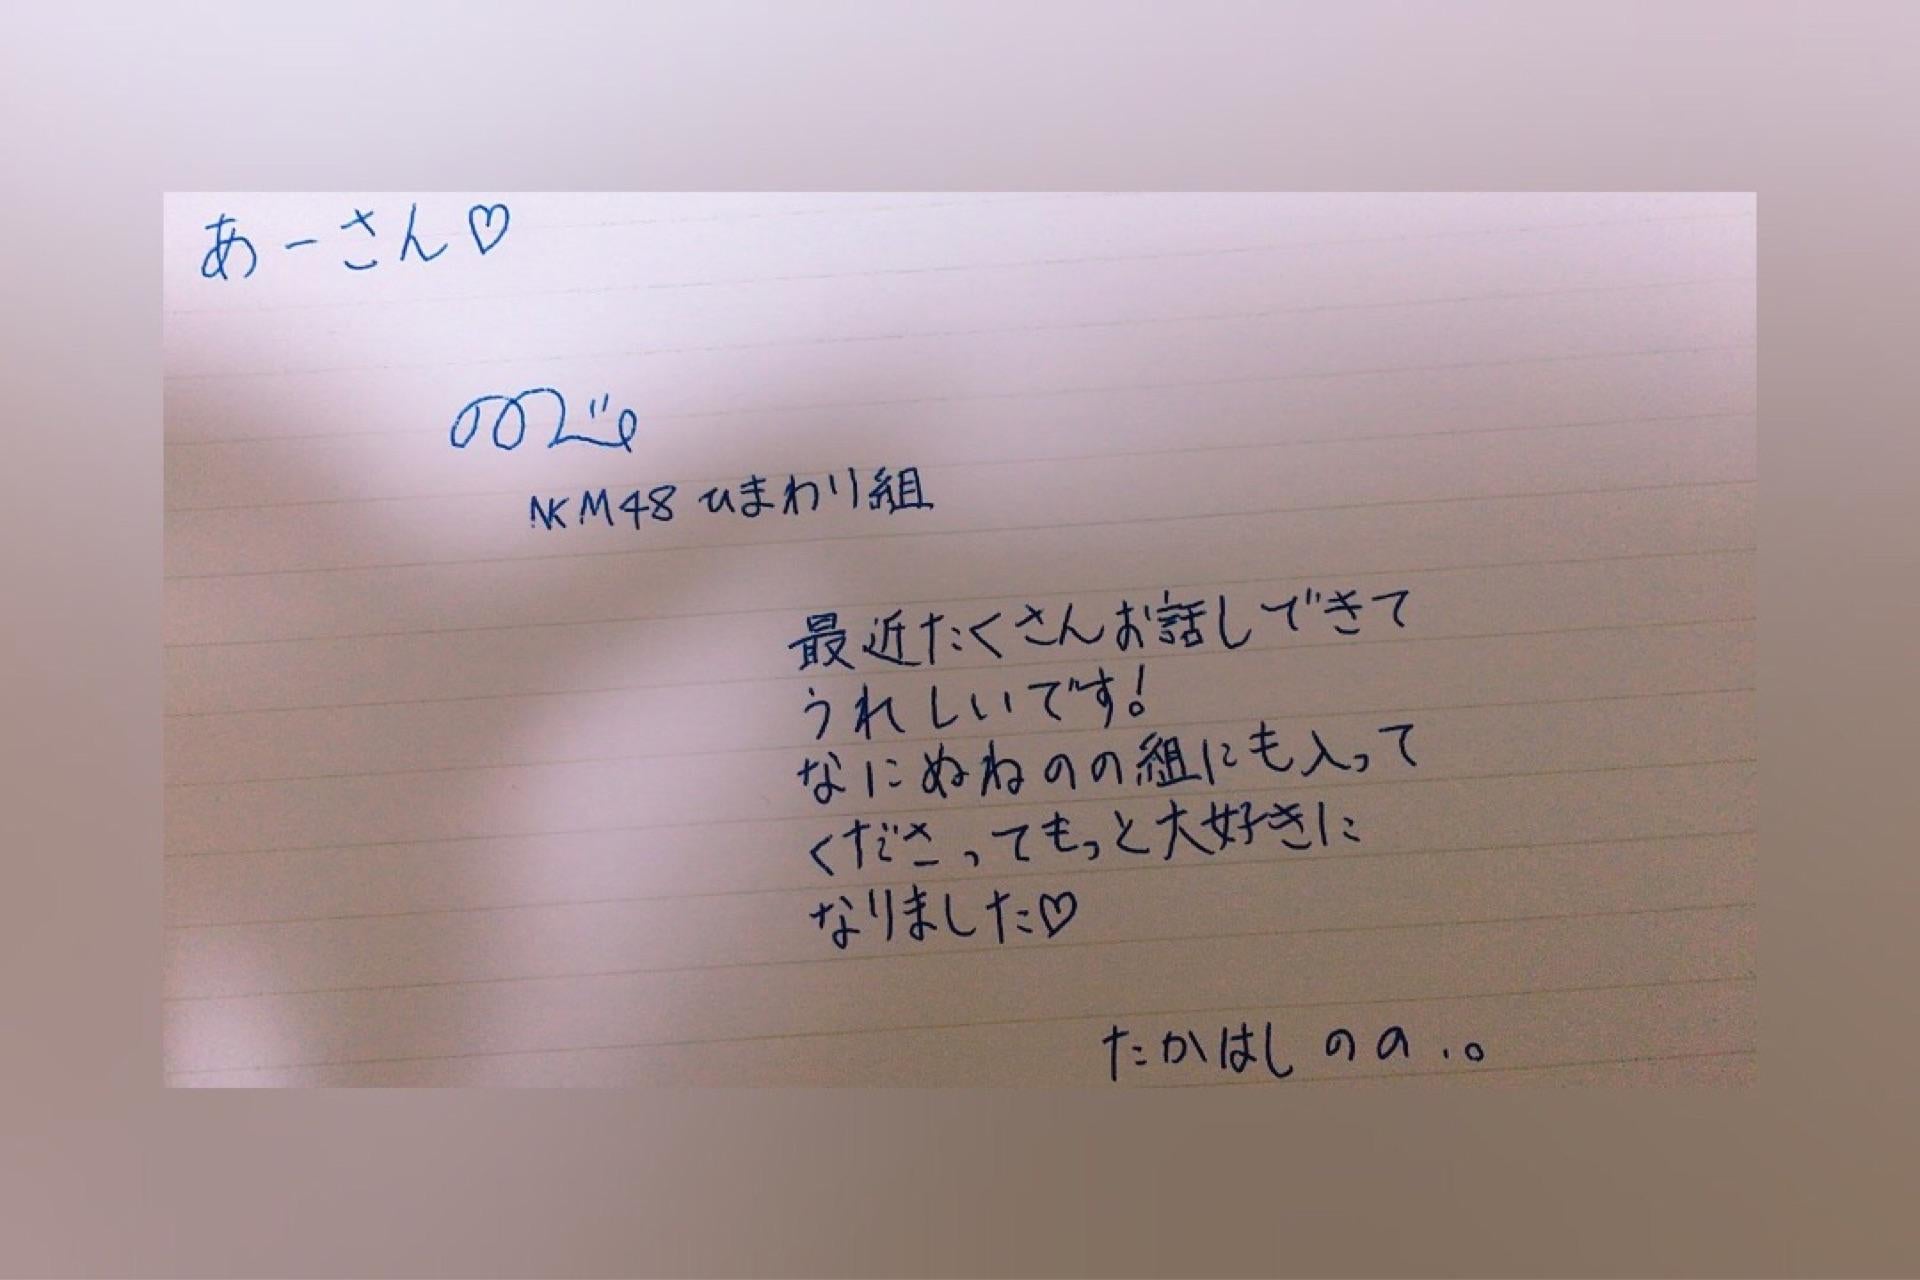 あーさん♡
NKM48 ひまわり組
最近たくさんお話しできて
うれしいです!
なにぬねのの組にも入って
くださってもっと大好きに
なりました♡
たかはしのの.。